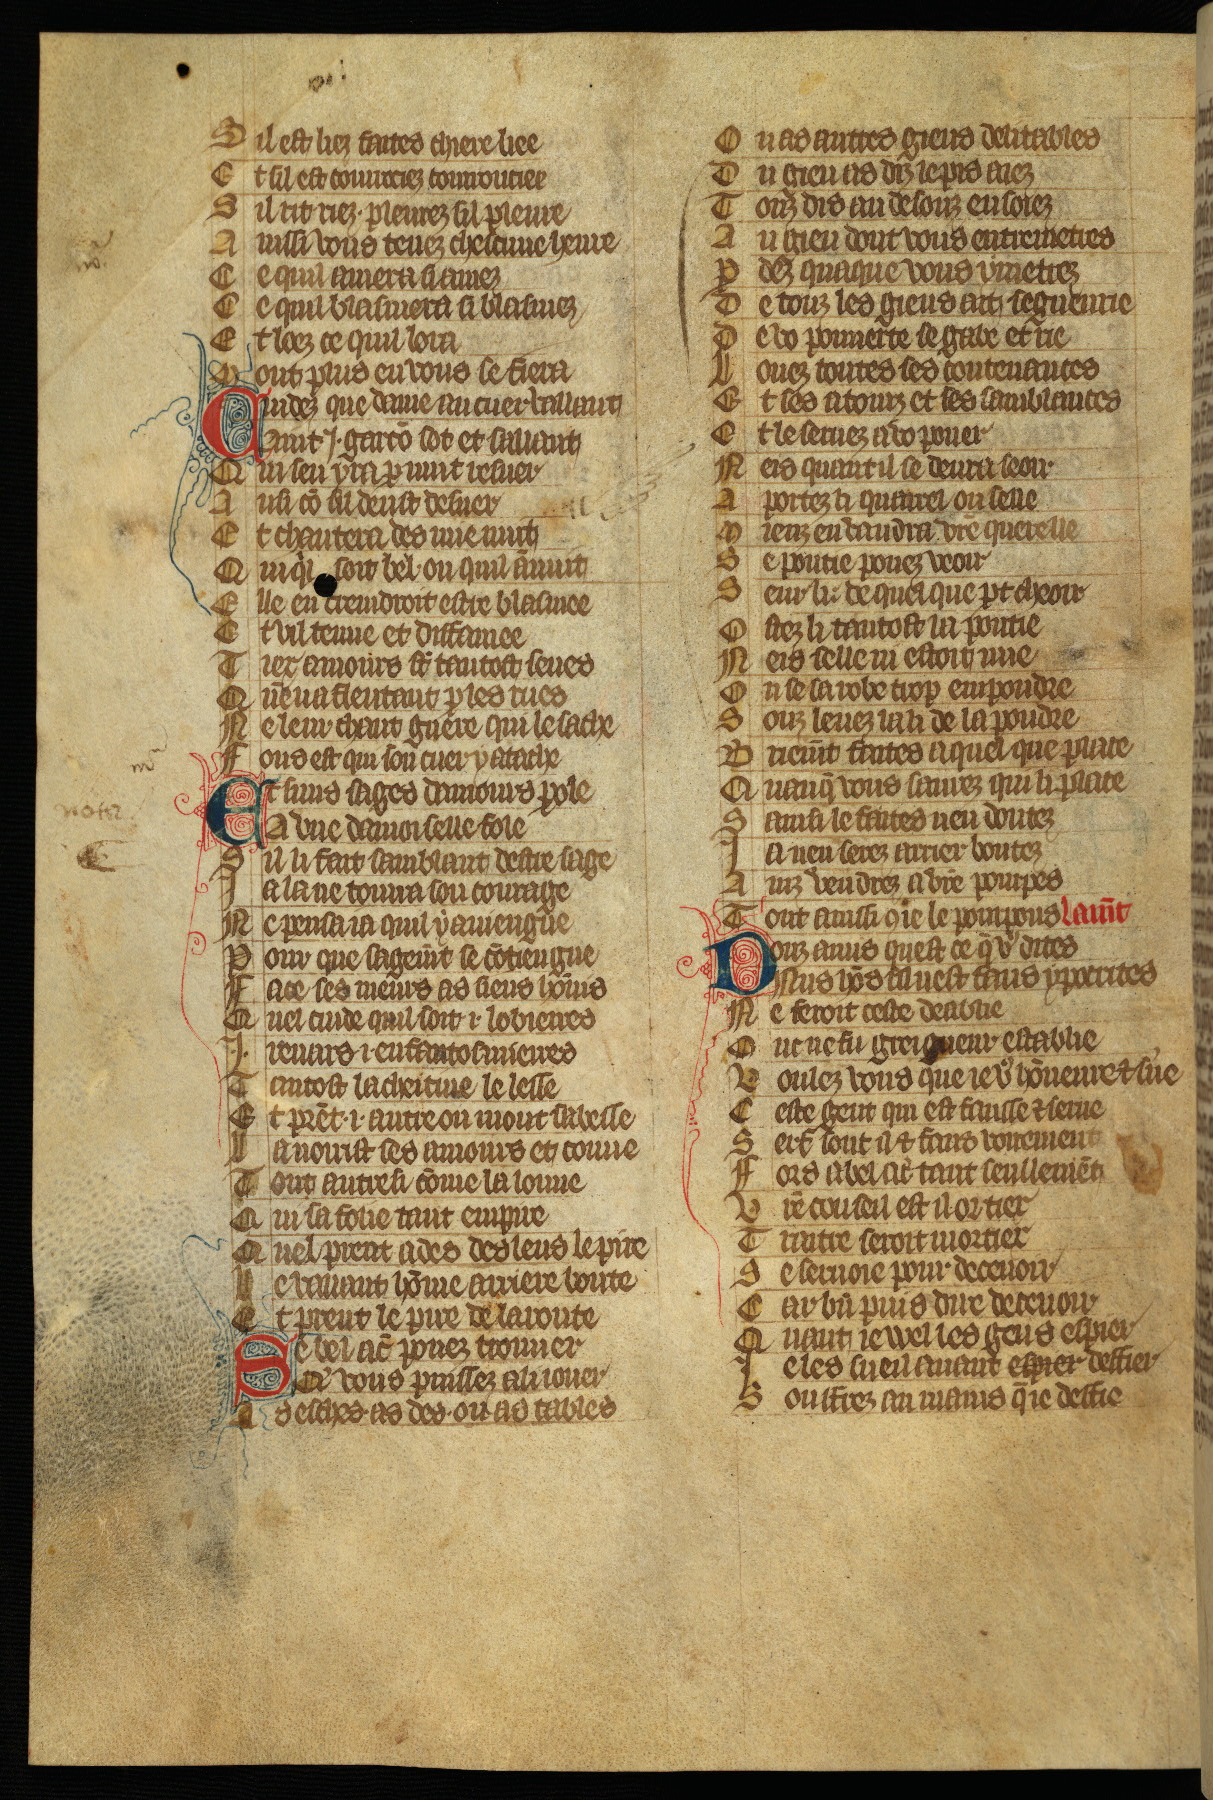 S il est liez faites chiere liee
E t sil est courreciez courrouciee
S il rit riez . plourez sil pleure
A inssi vous tenez chescune heure
C e quil amera si amez
C e quil blasmera si blasmez
E t loez ce quil lora
M out plus en vous se fiera
Cuidez que dame au cuer vaillant
Aint .i. garcō sot et sallant
Q ui sen yra p nuit resuer
A usi cō sil deust desuer
E t chantera des mie nuit
Q ui q̄l soit bel . ou quil ānuit
E lle en creindroit estre blasmee
E t vil tenue et diffamee
T iex amours st̄ tantost seues
Q uēua fleutant p les rues
N e leur chaut guere qui le sache
F ous est qui son cuer y atache
Et suns sages damours pole
A vne damoiselle fole
S il li fait samblant destre sage
J a la ne tourra son courage
N e pensa ia quil y auiengne
P our que sagemt se cōtiengne
F ace ses meurs as siens hōnis
Q uel cuide quil soit .i. lobierres
.J. reuars .i. enfantosmierres
T antost la cheitiue le lesse
E t prēt .i. autre ou mout sabesse
L
T out autresi cōme la louue
Q ui sa folie tant empire
Q uel prent ades des leus le pire
L e vaillant hōme arriere boute
E t prent le pire de la route
Se bel ac̄ pouez trouuer
Q̄ vous puissez a li iouer
A s eschés . as des . ou as tables
O u as autres gieus delitables
D u gieu as diz le pis aiez
T ouz dis au desouz en soiez
A u gieu dont vous entremetres
P dez quaque vous y metrez
D e touz les gieus ait seigneurie
D e vo pouuerte se gabe et rie
L ouez toutes ses contenances
E t ses atours et ses samblances
E t le seruez a vo pouer
N eis quant il se deura seoir
A portez li quarrel ou selle
M iex en vaudra vr̄e querelle
S e poutie pouez veoir
S eur li de quelque pt cheoir
O stez li tantost la poutie
N eis selle ni estoit mie
O u se sa robe trop empoudre
S ouz leuez la li de la poudre
B riemt faites a quel que place
Q uanq̄ vous sauez qui li place
S ainsi le faites nen doutez
J a nen serez arrier boutez
A inz vendrez a vr̄e poupes
T out aussi q̄ ie le pourpous Lamt
Douz amis quest ce q̄ v9 dites
Nus hōs sil nest faus ypocrites
N e feroit ceste deablie
O nc ne fu greigneur establie
V oulez vous que ie v9 hōneure et sue
C este gent qui est fausse et serue
S erf sont il et faus voirement
F ors a bel ac̄ tant seullemēt
V r̄e conseil est il or tier
T raitre seroit mortier
S e seruoie pour deceuoir
C ar bn̄ puis dire de ce voir
Q uant ie wel les gens espier
J e les sueil auant espier deffier
S ouffrez au mains q̄ ie deffie